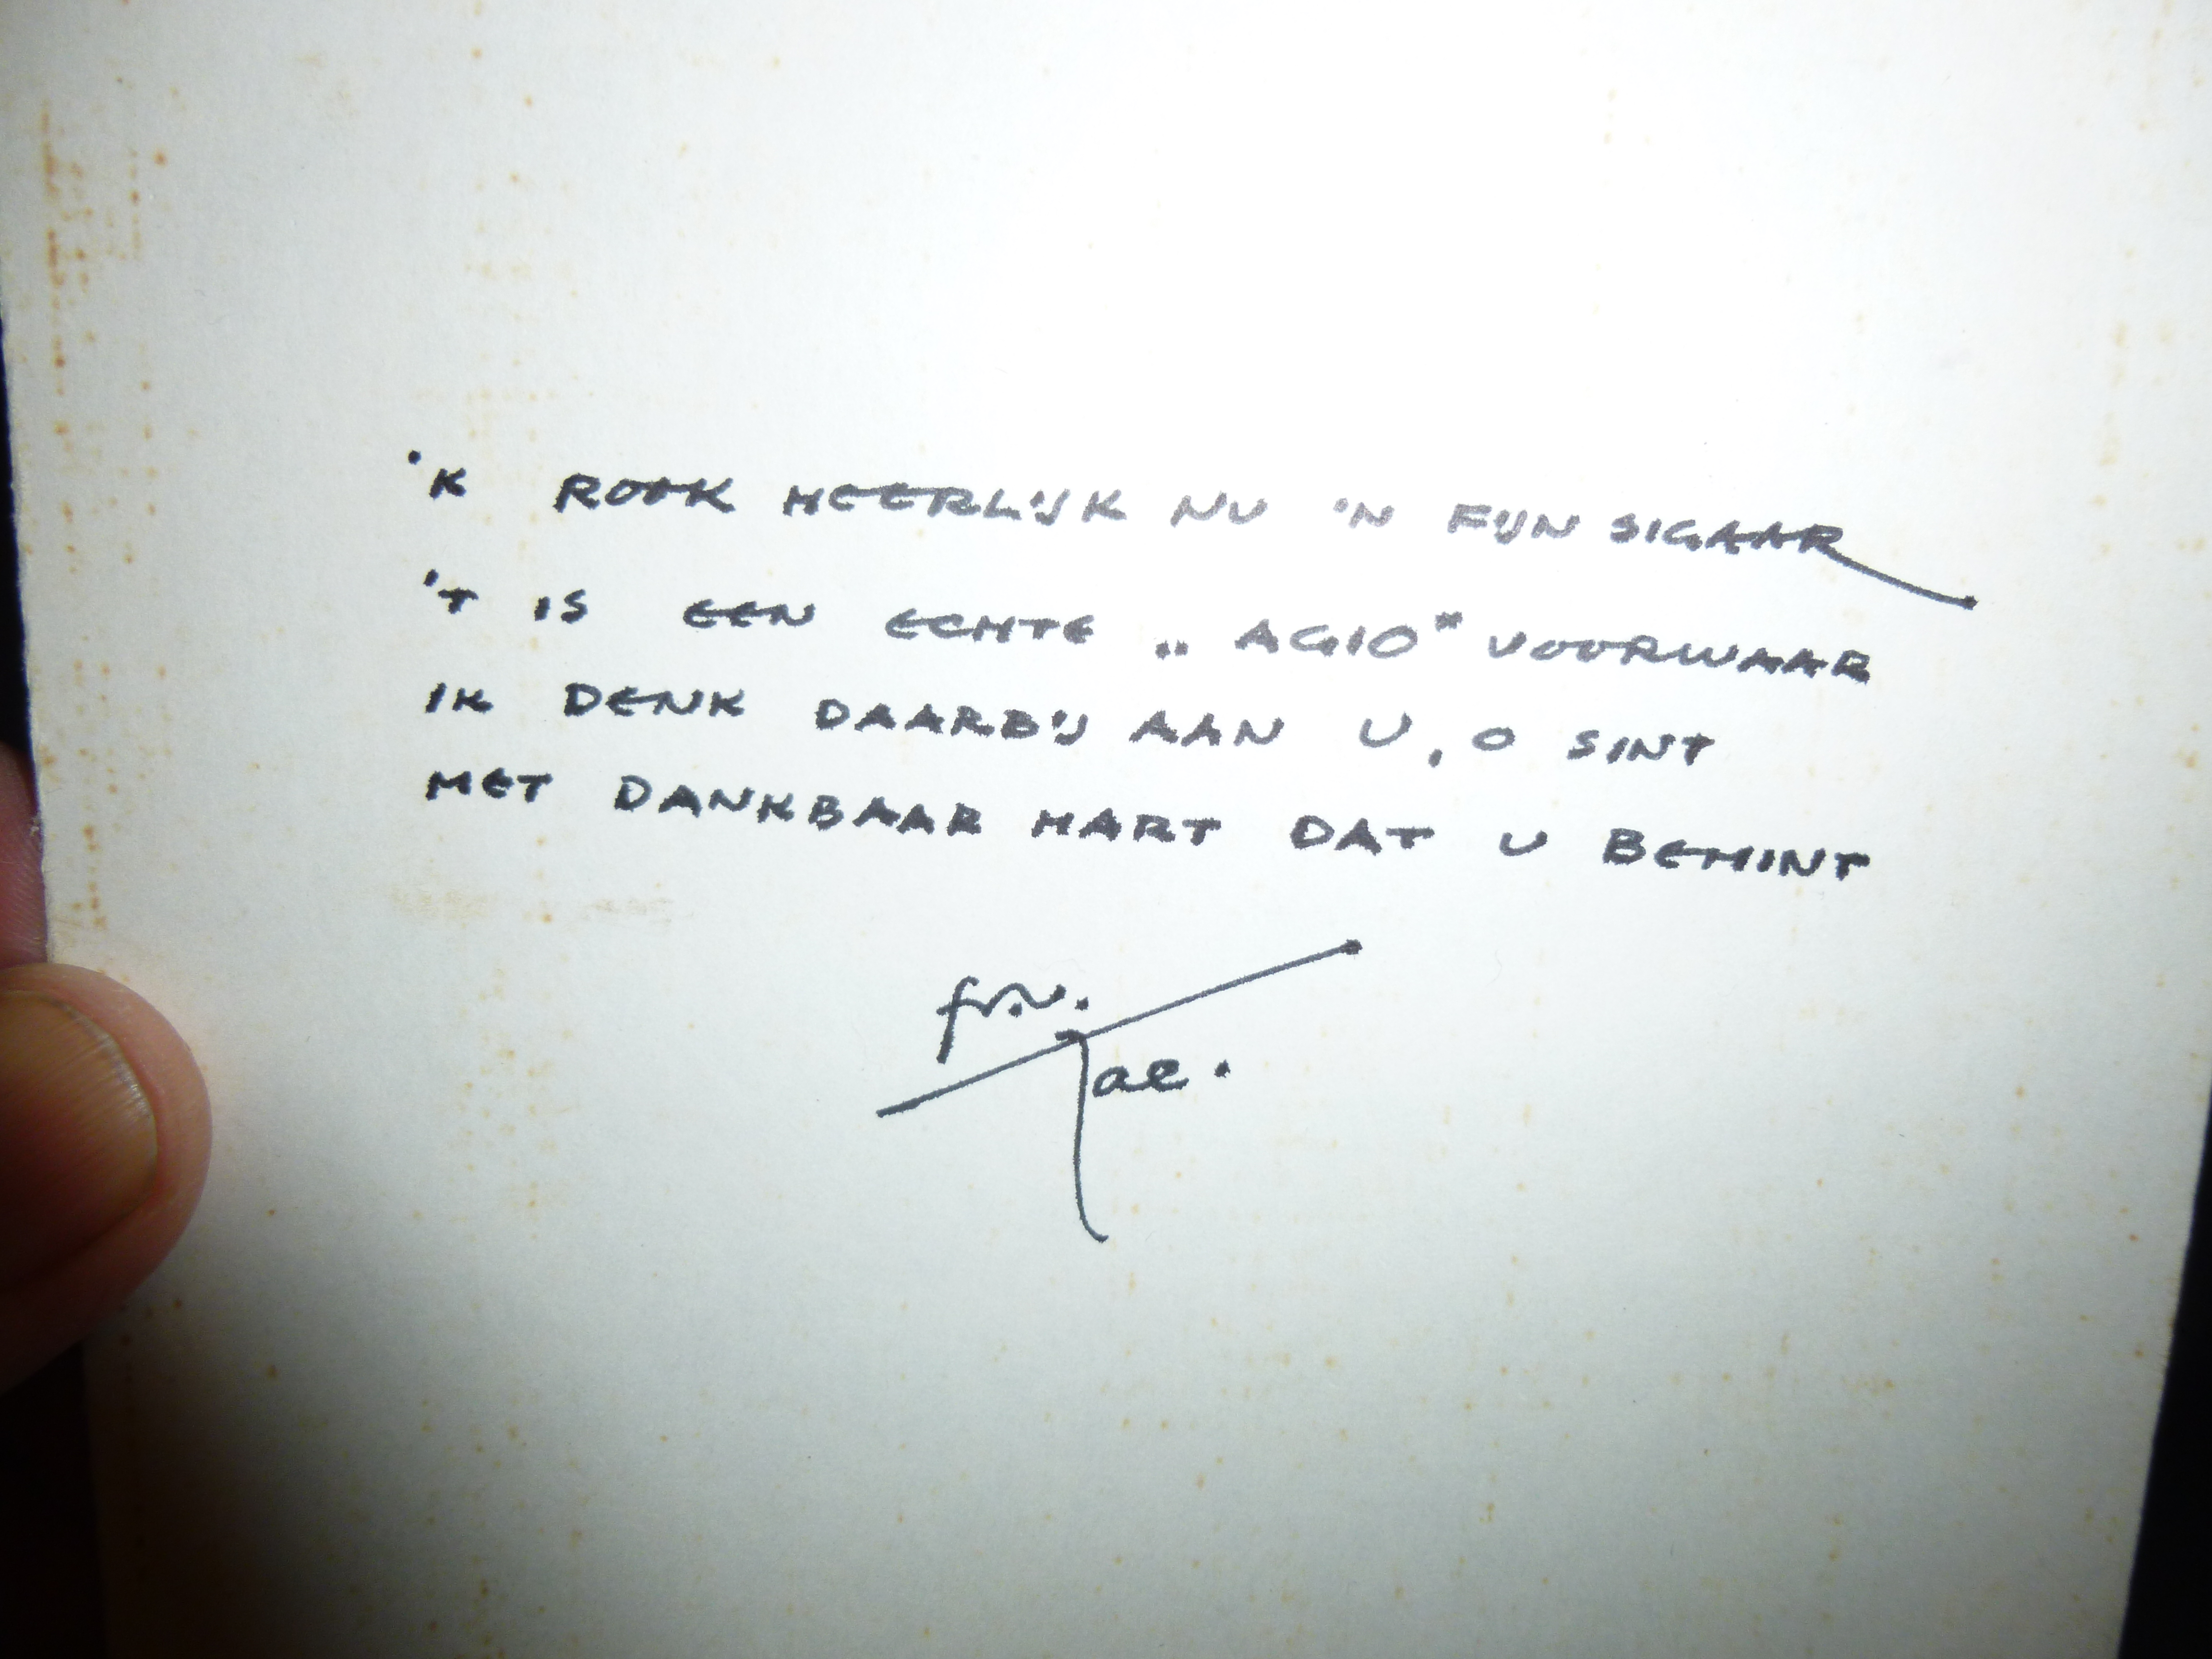 'K ROOK HEERLIJK NU 'N FIJN SIGAAR
'T IS EEN ECHTE „AGIO" VOORWAAR
IK DENK DAARBIJ AAN U, O SINT
MET DANKBAAR HART DAT U BEMINT